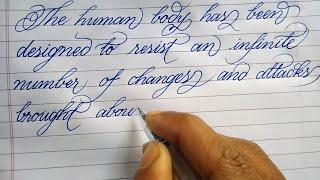 The human body has been
designed to resist an infinite
number of changes and attacks
brought abou